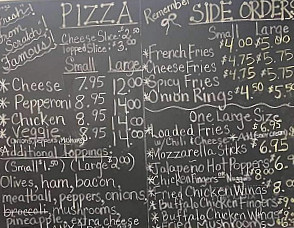 Fresh!
From
Scratch!
Famous!
PIZZA
Cheese Slice $2.
Topped Slice $3.00
Small Large
*Cheese 7.95 12.00
*Pepperoni 8.95 14.00
*Chicken 8.95 14.00
*Veggie 8.95 14.00
Additional Toppings:
(Small $1.50) (Large $2.00)
Olives, ham, bacon,
meatball, peppers, onions,
broccoli, mushrooms,
pineapple, extra cheese
Remember
SIDE ORDERS
Small Large
*French Fries $4.00 $5.00
*Cheese Fries $4.75 $5.75
*Spicy Fries $4.75 $5.75
*Onion Rings $4.50 $5.50
One Large Size
*Loaded Fries $6.95
w/Chili & Cheese
*Mozzarella Sticks 6.95
*Jalapeño Hot Poppers
*Chicken Fingers or Nuggets
*Fried Chicken Wings
*Buffalo Chicken Wings
*Fried Mushrooms